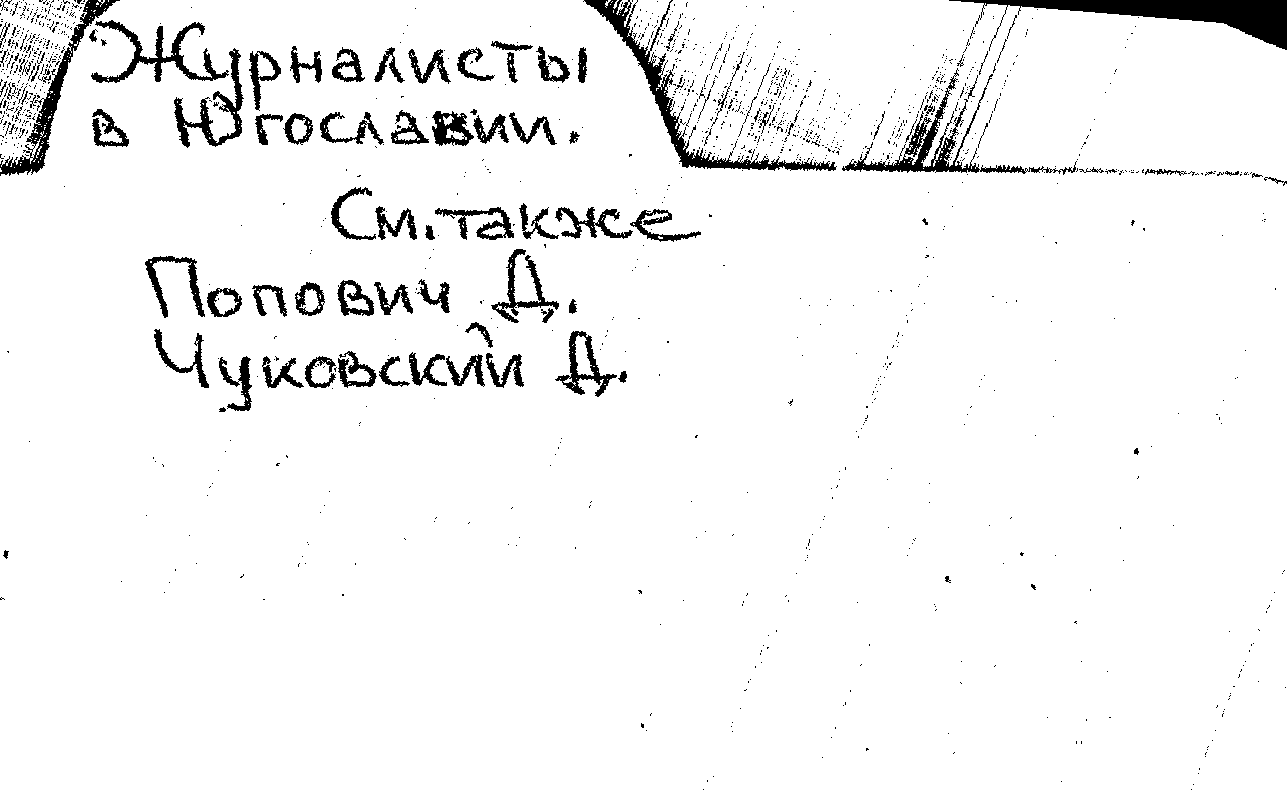 Журналисты
в Югославии.
См. также
Попович Д.
Чуковский Д.